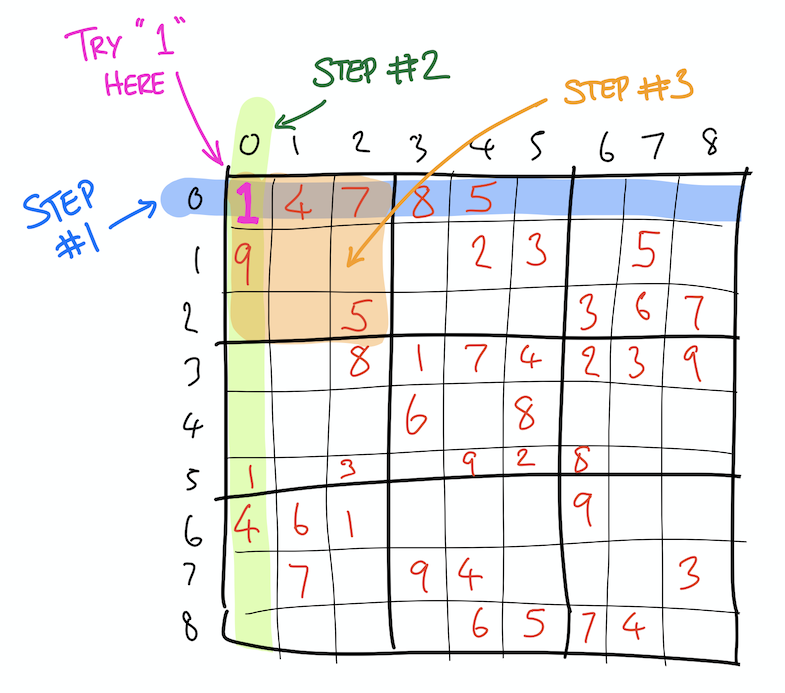 TRY "1"
HERE
STEP #2
STEP #3
0 1 2 3 4 5 6 7 8
STEP
#1
0 1 4 7 8 5
1 9 2 3 5
2 5 3 6 7
3 8 1 7 4 2 3 9
4 6 8
5 1 3 9 2 8
6 4 6 1 9
7 7 9 4 3
8 6 5 7 4